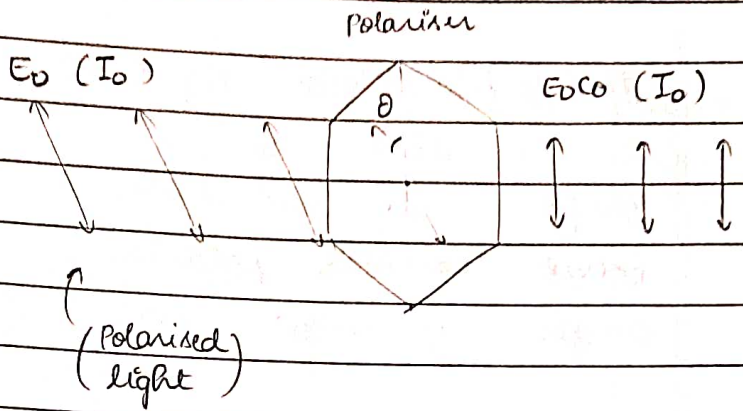 Polariser
E₀ (I₀)
θ
E₀cθ (I₀)
(Polarised
light)